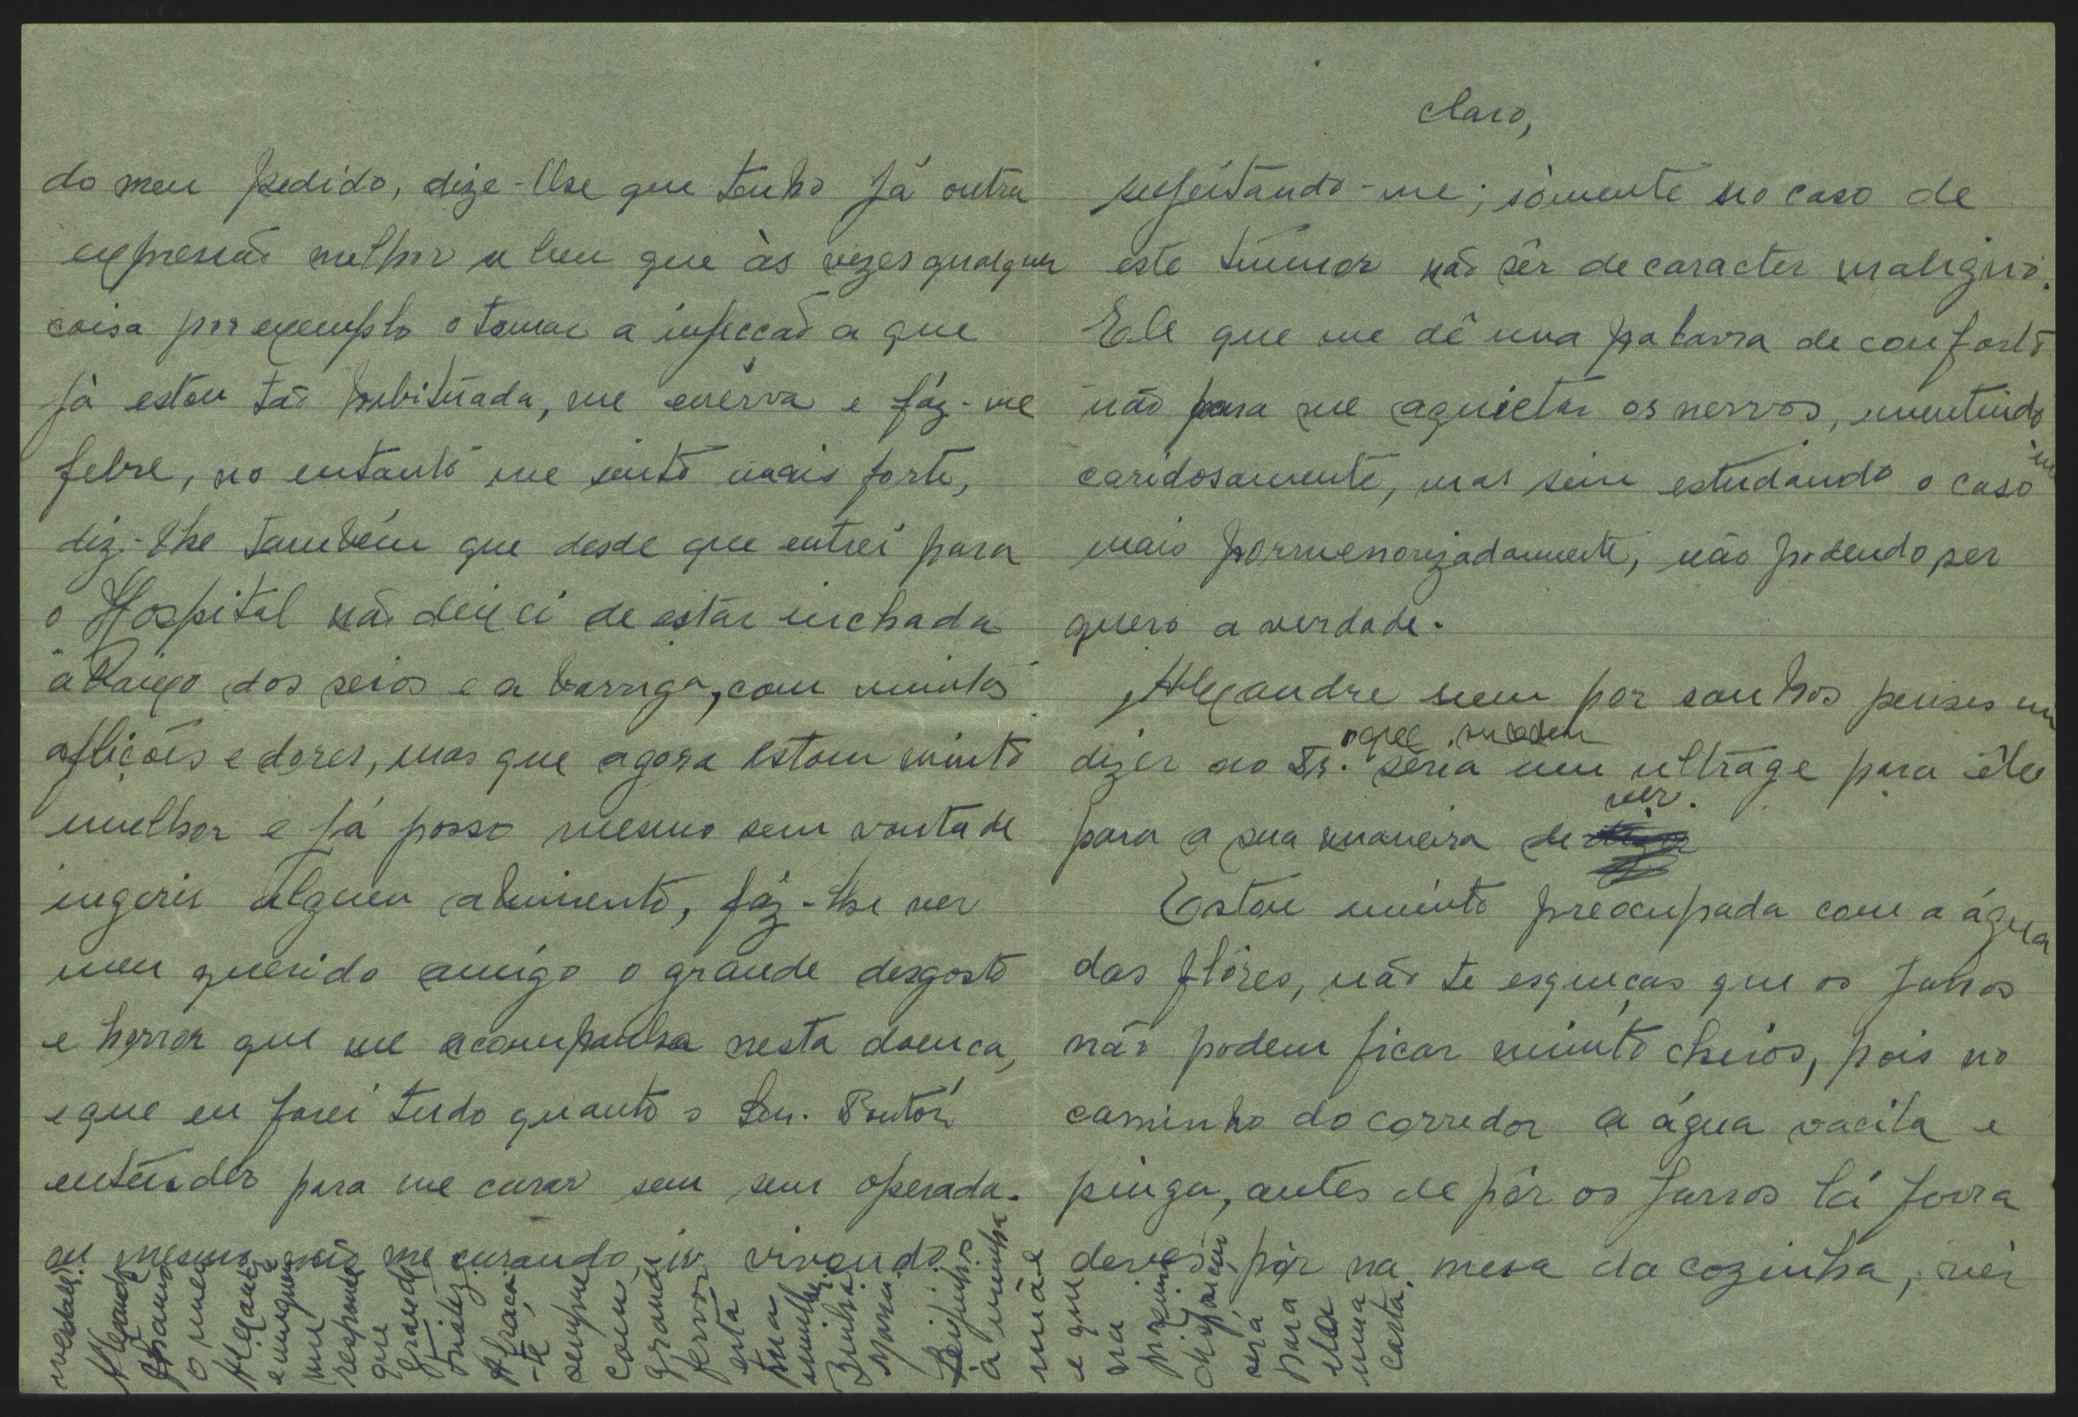 do meu pedido, dize-lhe que tenho já outra
expressão melhor e bem que às vezes qualquer
coisa por exemplo o tomar a injecção a que
já estou tão habituada, me enérva e fáz-me
febre, no entanto me sinto mais forte,
diz-lhe também que desde que entrei para
o Hospital não deixei de estar inchada
abaixo dos seios e a barriga, com muitas
aflições e dores, mas que agora estou muito
melhor e já posso mesmo sem vontade
ingerir algum alimento, fáz-lhe ver
meu querido amigo o grande desgosto
e horror que me acompanha nesta doença,
e que eu farei tudo quanto o Snr. Doutôr
entender para me curar sem ser operada.
ou mesmo não me curando, ir vivendo
Claro,
sujeitando-me; sòmente no caso de
este tumor não sêr de caracter maligno.
Ele que me dê uma palavra de conforto
não para me aquietar os nervos, mentindo
caridosamente, mas sim estudando o caso
mais pormenorizadamente, não podendo ser
quero a verdade.
Alexandre nem por sonhos penses em
dizer ao Dr. o que sucedeu seria um ultrage para êle
para a sua maneira de ver.
Estou muito preocupada com a água
das flôres, não te esqueças que os jarros
não podem ficar muito cheios, pois no
caminho do corredor a água vacila e
pinga, antes de pôr os jarros lá fora
deves pôr na mesa da cozinha, vêr
Alexandre
o meu
Alexandre
e ninguem
me
responde
que
grande
tristez
Abraça
-te
sempre
com
grande
fervor
esta
tua
Maria
Beijinhos
à minha
mãe
e que
na
proxima
será
para
ela
uma
carta.